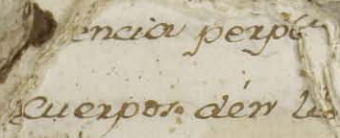 encia perpe
cuerpos. dén